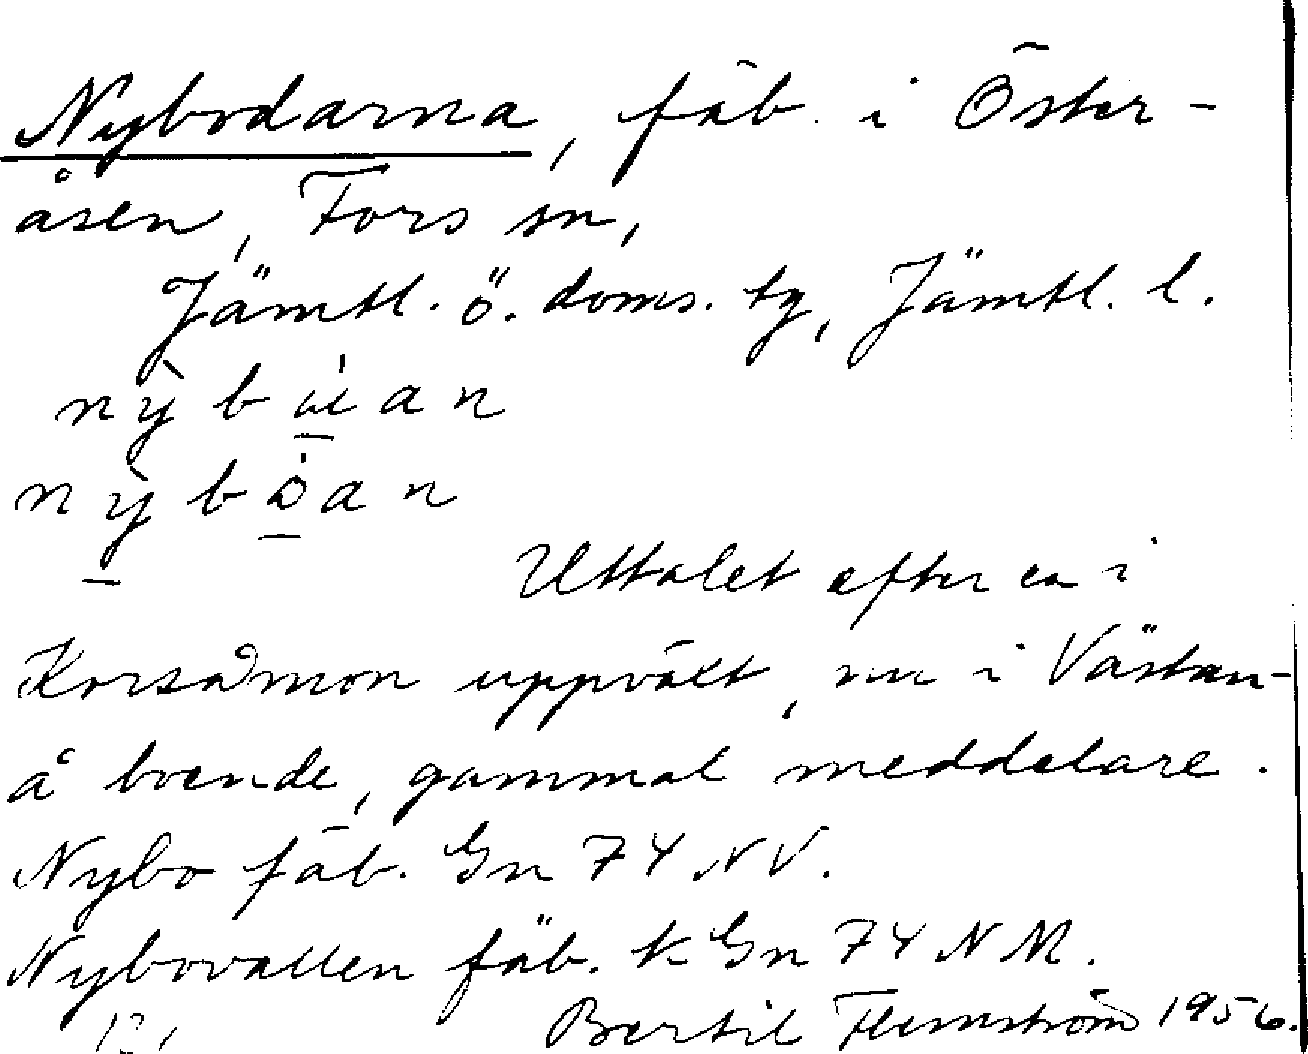 Nybodarna, fäb. i Öster-
åsen, Fors sn,
Jämtl. ö. doms. tg, Jämtl. l.
nỳbu̇̀an
nỳbòan
Uttalet efter en i
Korsåmon uppväxt, nu i Västan-
å boende, gammal meddelare.
Nybo fäb. Gn 74 NV.
Nybovallen fäb. k Gn 74 NM.
Bertil Flemström 1956.